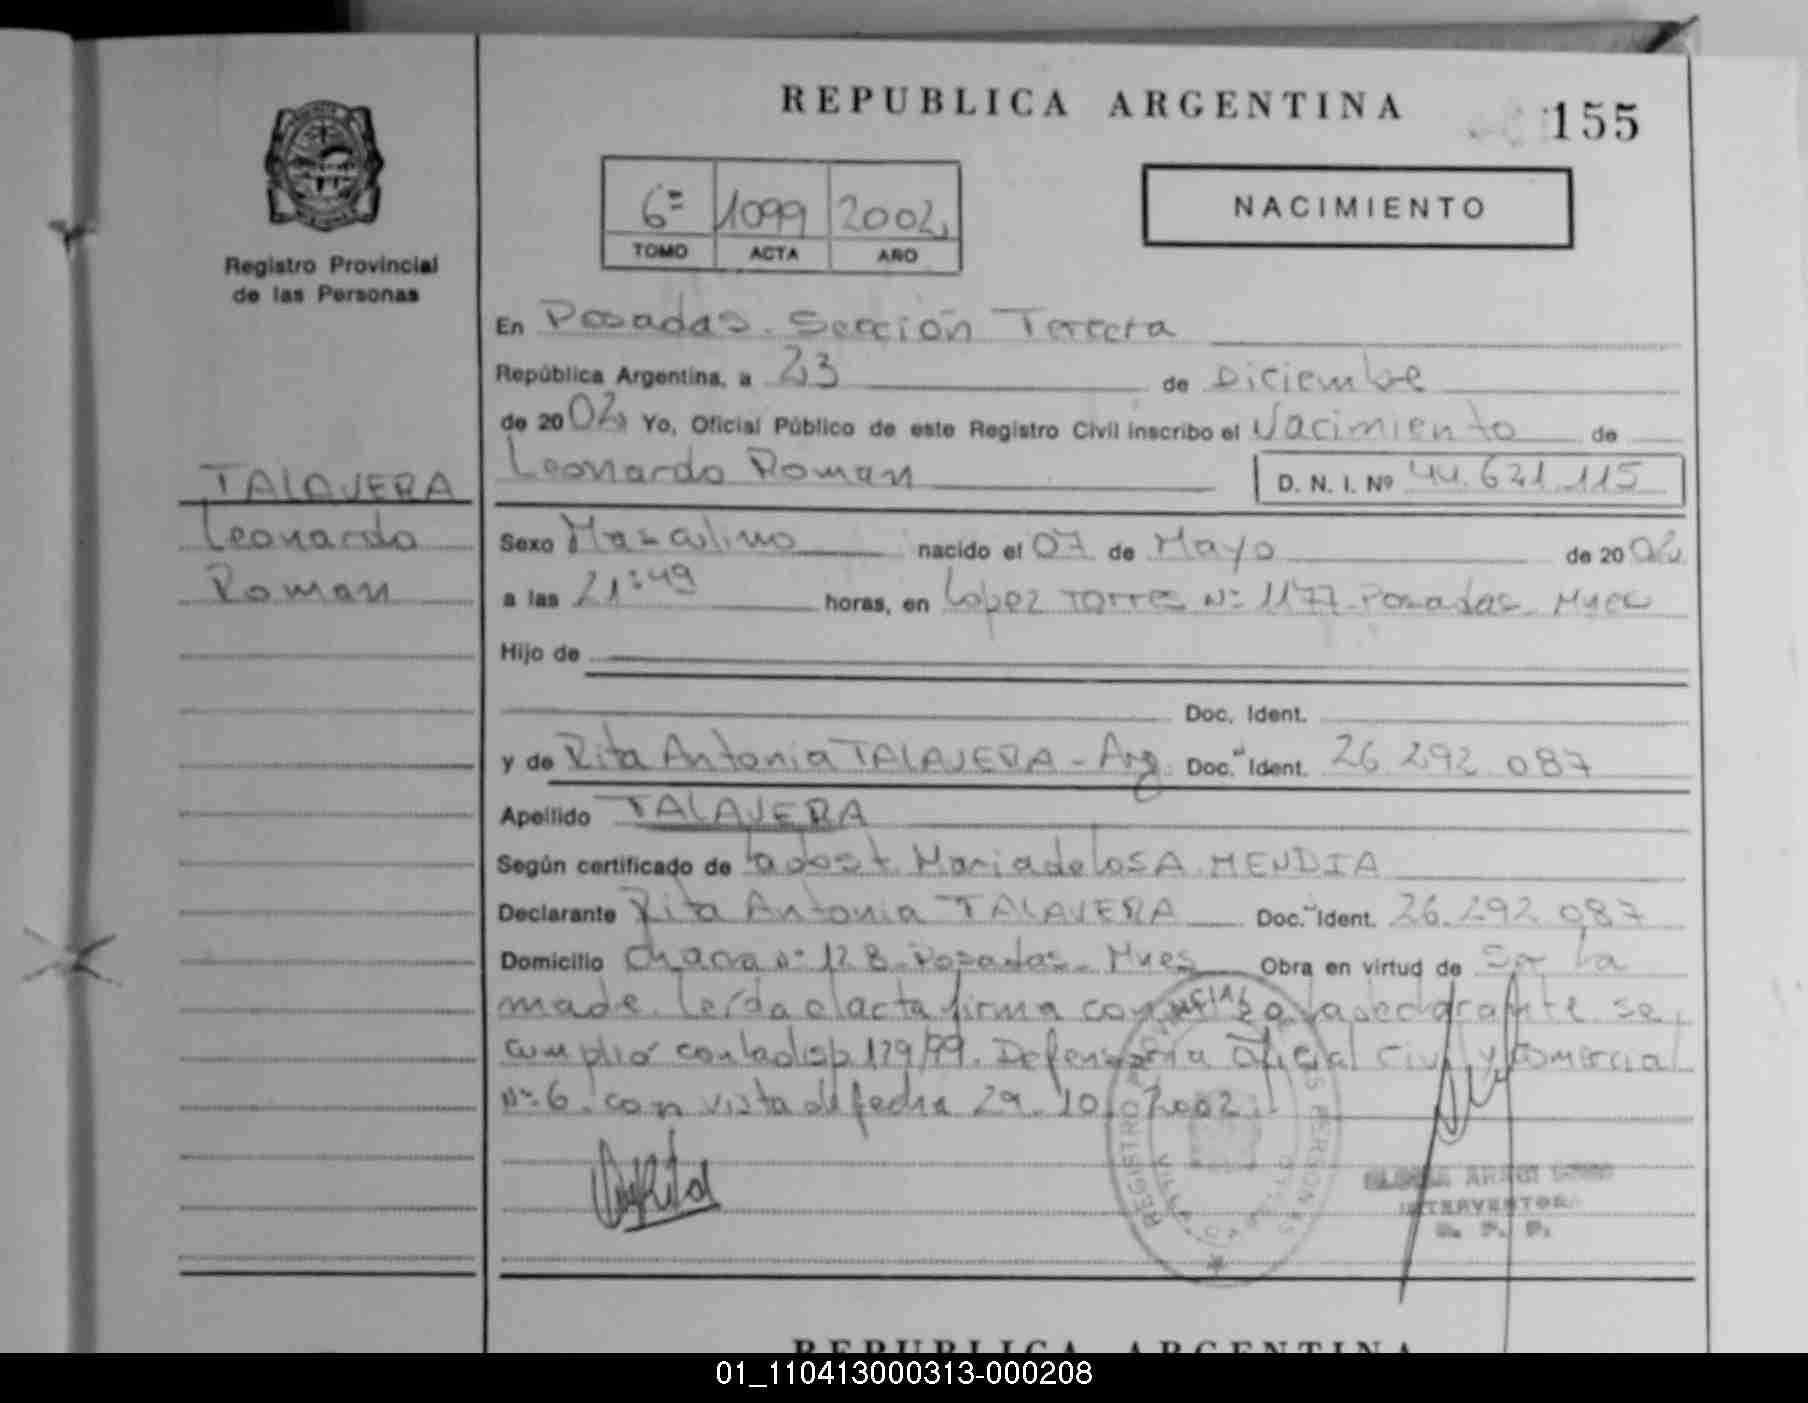 REPUBLICA ARGENTINA
155
6º 1099 2002
TOMO ACTA AÑO
NACIMIENTO
Registro Provincial
de las Personas
En Posadas. Sección Tercera
República Argentina, a 23 de Diciembre
de 2002 Yo, Oficial Público de este Registro Civil inscribo el Nacimiento de
TALAVERA
Leonardo Roman D. N. I. Nº 44.621.115
Leonardo
Roman
Sexo Masculino nacido el 07 de Mayo de 2002
a las 21:49 horas, en Lopez Torres Nº 1177 Posadas Mnes
Hijo de
Doc. Ident.
y de Rita Antonia TALAVERA - Arg. Doc. Ident. 26.292.087
Apellido TALAVERA
Según certificado de la obst. Maria de los A. MENDIA
Declarante Rita Antonia TALAVERA Doc. Ident. 26.292.087
Domicilio Chacra Nº 128 Posadas - Mnes Obra en virtud de Ser la
madre. Leída el acta firma conmigo la declarante se
cumplió con la disp. 179/99. Defensoria Oficial Civil y Comercial
Nº 6. con vista de fecha 29.10.2002.
REGISTRO PROVINCIAL DE LAS PERSONAS
INTERVENTORA
R. P. P.
REPUBLICA ARGENTINA
01_110413000313-000208